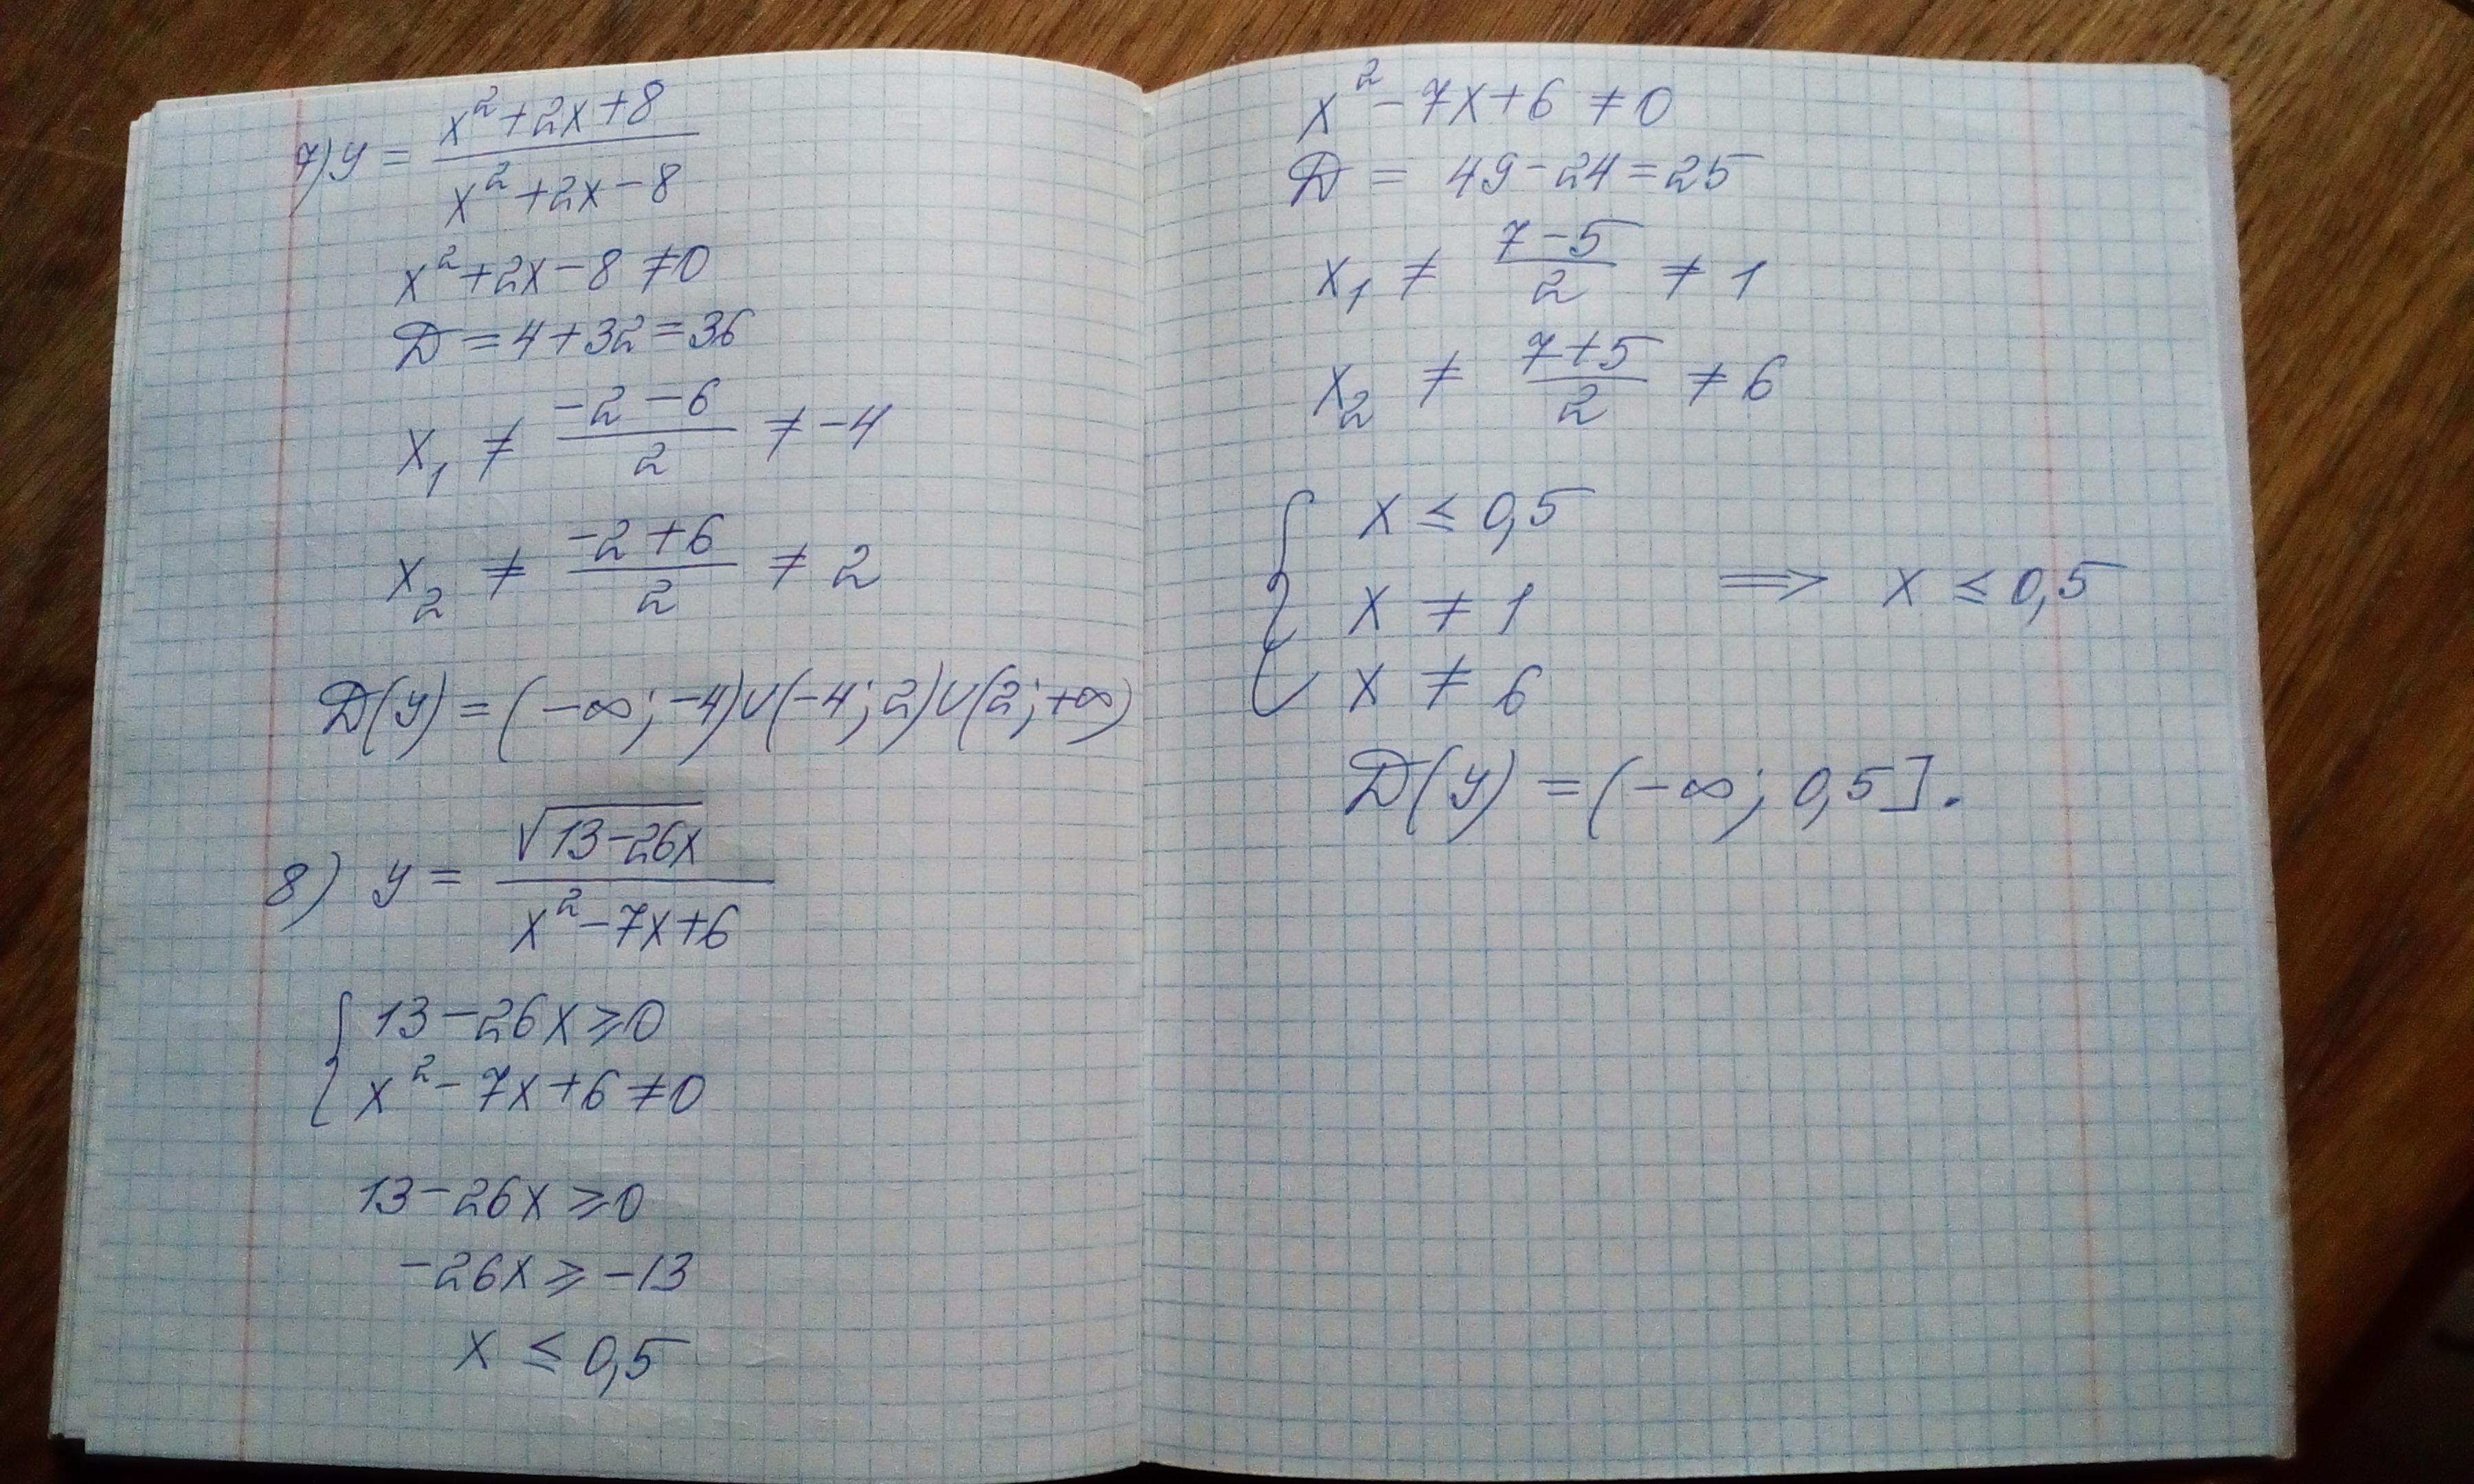 7) y = (x² + 2x + 8)/(x² + 2x − 8)
x² + 2x − 8 ≠ 0
D = 4 + 32 = 36
x₁ ≠ (−2 − 6)/2 ≠ −4
x₂ ≠ (−2 + 6)/2 ≠ 2
D(y) = (−∞; −4)∪(−4; 2)∪(2; +∞)
8) y = √(13 − 26x)/(x² − 7x + 6)
{ 13 − 26x ⩾ 0
x² − 7x + 6 ≠ 0
13 − 26x ⩾ 0
−26x ⩾ −13
x ⩽ 0,5
x² − 7x + 6 ≠ 0
D = 49 − 24 = 25
x₁ ≠ (7 − 5)/2 ≠ 1
x₂ ≠ (7 + 5)/2 ≠ 6
{ x ⩽ 0,5
x ≠ 1 ⟹ x ⩽ 0,5
x ≠ 6
D(y) = (−∞; 0,5].